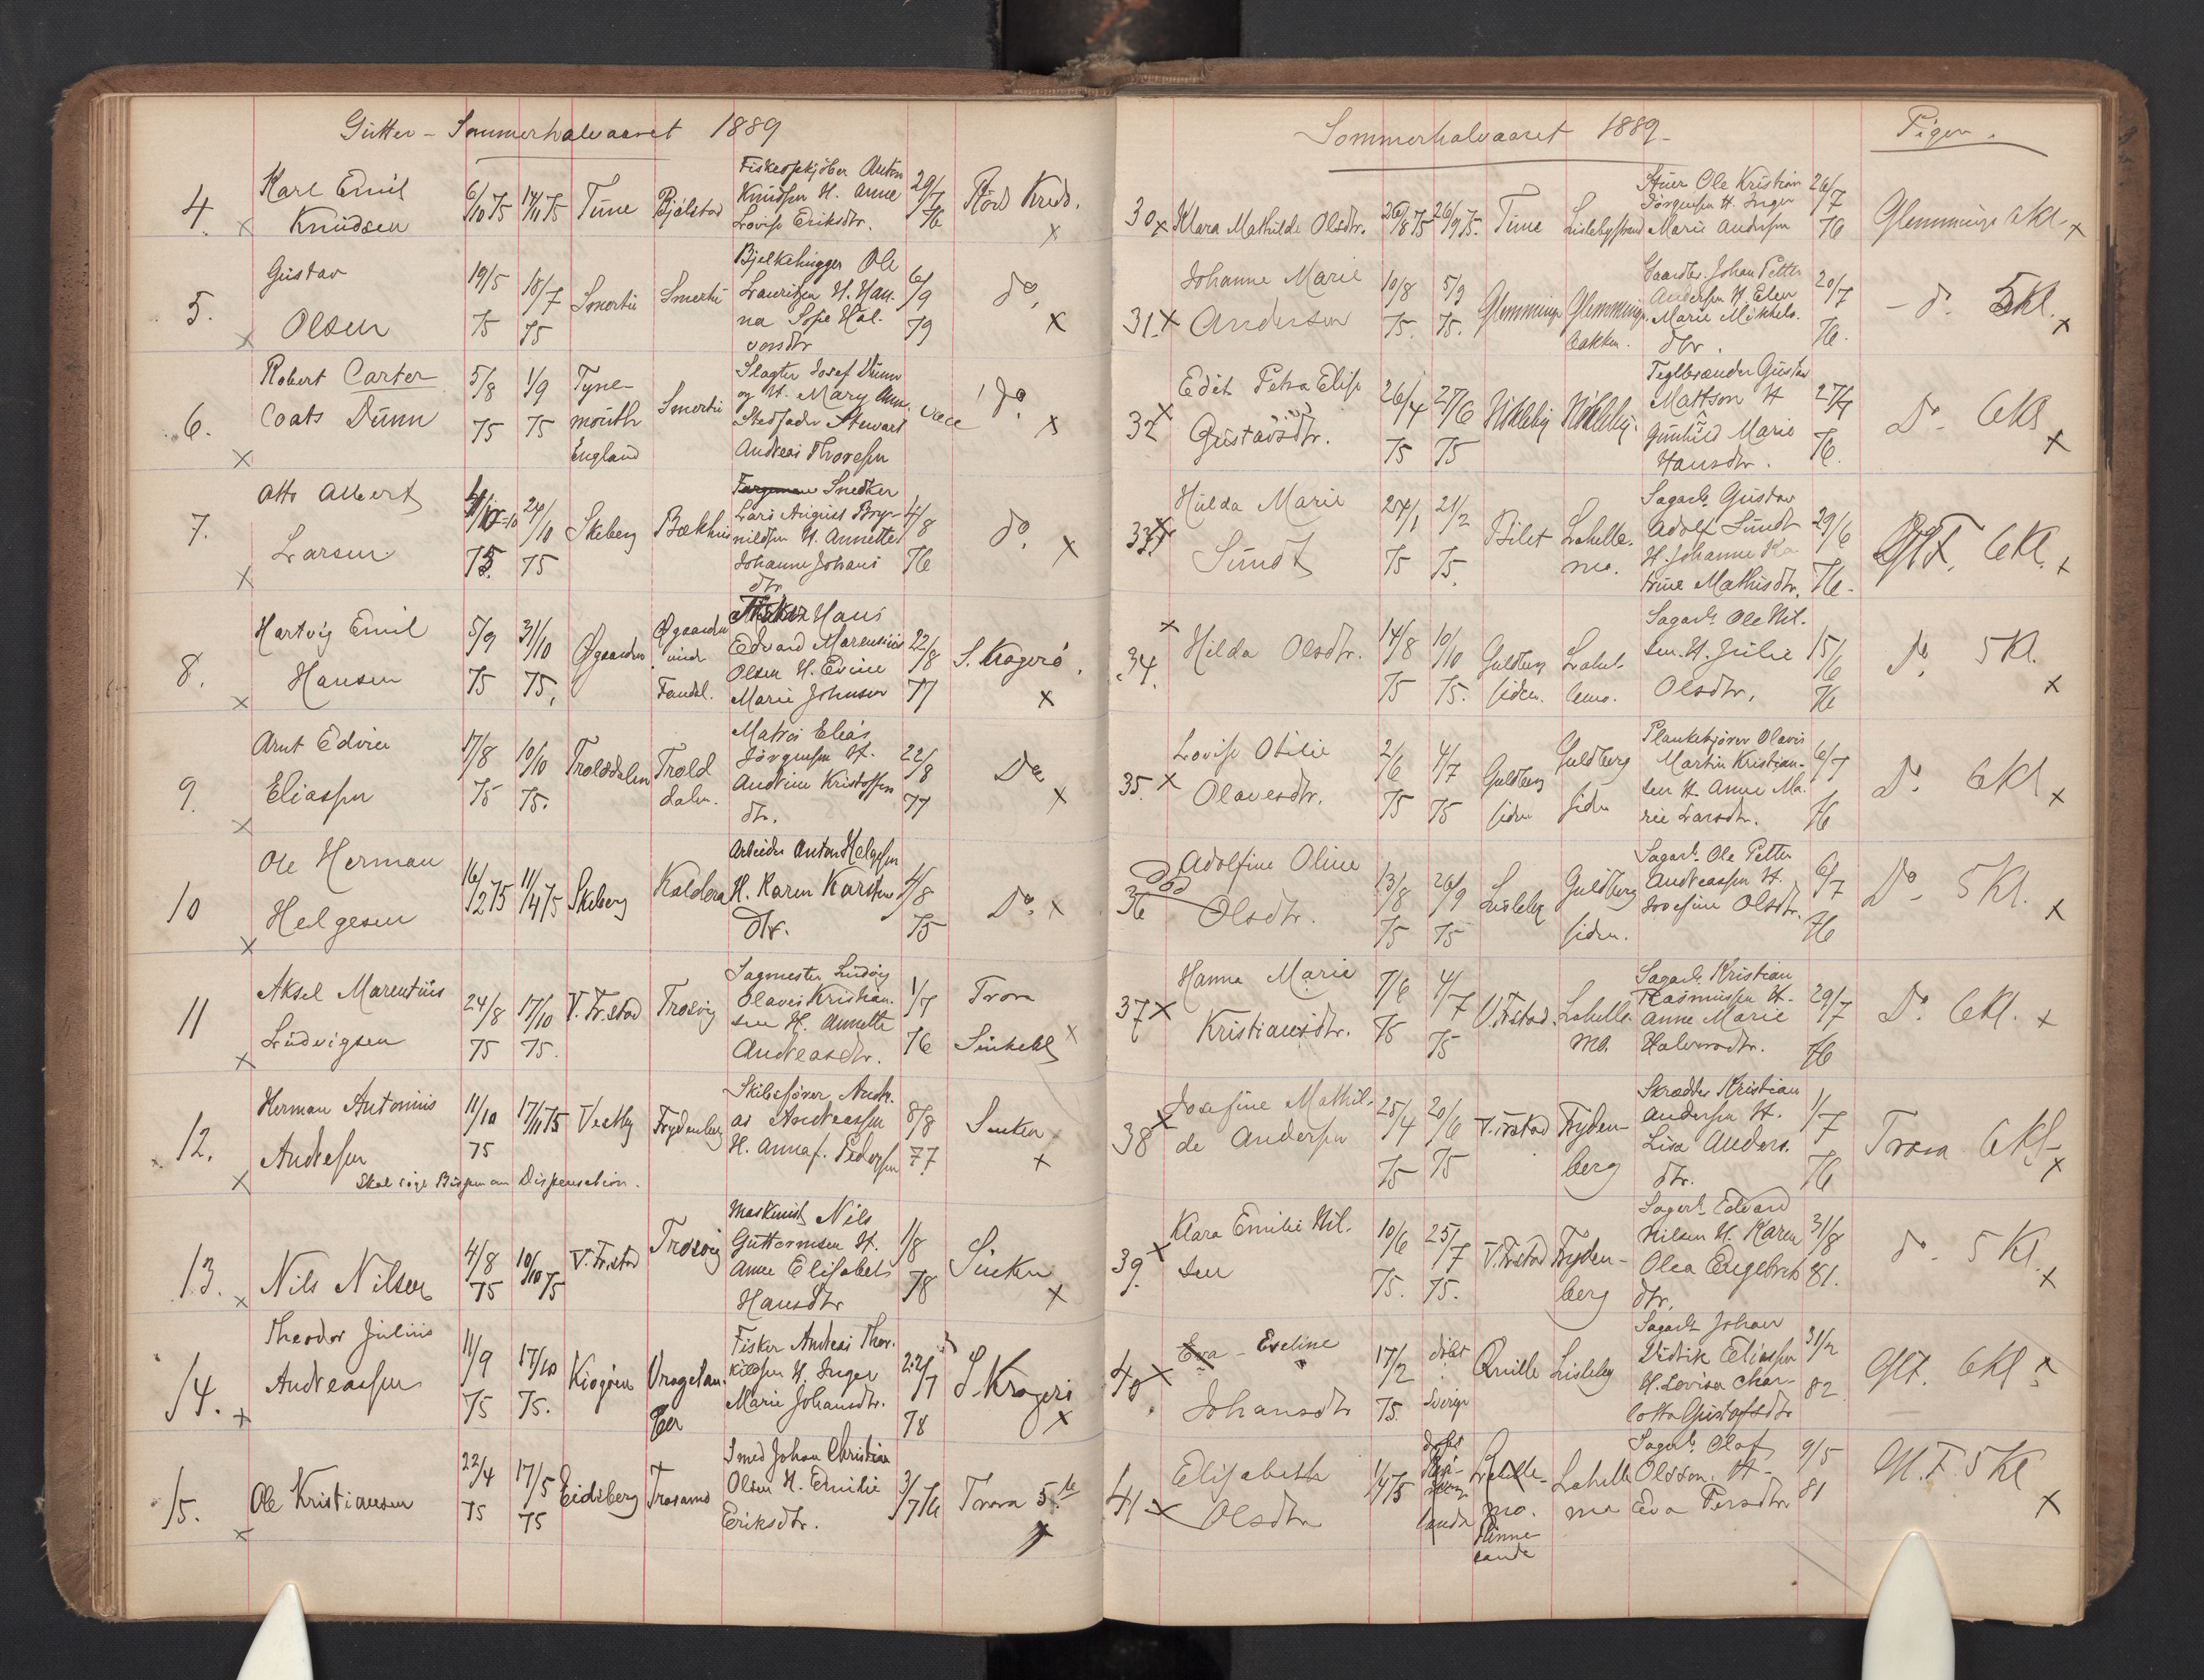 Gutter - Sommerhalvaaret 1889
4. x Karl Emil Knudsen 6/10 75 14/11 75 Tune Bjølstad Fiskeopkjøber Anton Knudsen H. Anne Lovise Eriksdtr. 29/7 76 x
5. x Gustav Olsen 19/5 75 18/7 75 Smertu Smertu Bjelkehugger Ole Lauritsen H. Hanna Sofie Halvorsdtr 6/9 79 do. x
6. x Robert Carter Coats Dunn 5/8 75 1/9 75 Tynemouth England Smertu Slagter Josef Dunn og H. Mary Ann. Stedfader Stewart Andreas Thoresen vacc do. x
7. x Otto Albert Larsen 75 24/10 75 Skeberg Bækhus Snedker Lars August Brynildsen H. Annette Johanne Johansdtr 4/8 76 do. x
8. x Hartvig Emil Hansen 5/9 75 31/10 75. Øgaarden Øgaarden Hans Edvard Marensius Olsen H. Evine Marie Johnsen 22/8 77 S. Kragerø. x
9. x Arnt Edvin Eliassen 17/8 75 10/10 75. Trolddalen Trolddalen. Matros Elias Jørgensen H. Andrine Kristoffersdtr. 22/8 77 Do x
10 x Ole Herman Helgesen 16/12 75 11/4 75 Skeberg Kaldera Arbeider Anton Helgesen H. Karen Karlsdtr. 4/8 75 Do. x
11 x Aksel Marentius Ludvigsen 24/8 75 17/10 75. V. Fr.stad Trosvig Sagmester Ludvig Olaves Kristiansen H. Annette Andreasdtr. 1/7 76 Trora x
12. x Herman Antonius Andresen 11/10 75 17/11 75 Vestby Frydenberg Skibsfører Andreas Andreassen H. Anna f. Pedersen 8/8 77 x
Skal søge Bispen om Dispensation.
13. x Nils Nilsen 4/8 75 10/10 75 V. Fr.stad Trosvig Maskinist Nils Guttormsen H. Anne Elisabeth Hansdtr 1/8 78 x
14. x Theodor Julius Andreassen 11/9 75 17/10 75. Kjøgøen Fisker Andreas Thorkildsen H. Inger Marie Johansdtr. 22/7 78 S. Kragerø x
15. x Ole Kristiansen 22/4 75 17/5 75 Eidsberg Smed Johan Christian Olsen H. Emilie Eriksdtr. 3/7 76 Trora 5te x
Sommerhalvaaret 1889 -
Piger.
30 x Klara Mathilde Olsdtr. 26/8 75 26/9 75. Tune Lislebystrand Stuer Ole Kristian Jørgensen H. Inger Marie Andersen 26/7 76 Glemminge 6Kl. x
31. x Johanne Marie Andersen 10/8 75. 5/9 75. Glemminge Glemminge bakken. Gaardbr. Johan Petter Andersen H. Elen Marie Mikkelsdtr. 20/7 76. - do. 5Kl. x
32 x Edit Petra Elise Gustavsdtr. 26/4 75 27/6 75 Nøkleby Nøkleby. Teglbrænder Gustav Mattson H Gunhild Marie Hansdtr. 27/7 76. Do. 6Kl x
33 x Hulda Marie Sundt 75 21/2 75. Lahellemo. Sagarb. Gustav Adolf Sundt H. Johanne Katrine Mathisdtr. 29/6 76. Gl.F. 6Kl. x
34. x Hilda Olsdtr. 14/8 75 10/10 75. Guldbergsiden. Lahellemo. Sagarb. Ole Nilsen. H. Julie Olsdtr. 15/6 76 Do. 5Kl. x
35. x Lovise Otilie Olavesdtr. 2/6 75 4/7 75 Guldbergsiden Guldbergsiden Plankekjører Olavis Martin Kristiansen H. Anne Marie Larsdtr. 6/7 76 Do. 6Kl x
36 Død Adolfine Oline Olsdtr. 13/8 75 26/9 75 Lisleby Guldbergsiden. Sagarb. Ole Petter Andreassen H. Josefine Olsdtr. 6/7 76 Do. 5Kl. x
37 x Hanna Marie Kristiansdtr. 7/6 75 4/7 75 V. Fr.stad. Lahellemo. Sagarb. Kristian Rasmussen H. Anne Marie Halvorsdtr. 29/7 76 Do. 6Kl. x
38 x Josefine Mathilde Andersen 25/4 75 20/6 75 V. Frstad Frydenberg Skrædder Kristian Andersen H. Lisa Andersdtr. 1/7 76 Trara 6Kl. x
39. x Klara Emilie Nilsen 10/6 75. 25/7 75. V. Frstad Frydenberg Sagarb. Edvard Nilsen H. Karen Olea Engebretsdtr. 31/8 81. do. 5 Kl. x
40. x Eva - Eveline Johansdtr 17/2 75. døbt Sverige Qville Lisleby Sagarb. Johan Didrik Eliassen H. Lovisa Charlotta Gustafsdtr 31/2 82 Gl.F. 6Kl x
41 x Elisabeth Olsdtr 1/4 75 Lahellemo. Lahellemo Sagarb. Olaf Olsson. H. Eva Persdtr 9/5 81 Gl. F. 5 Kl x